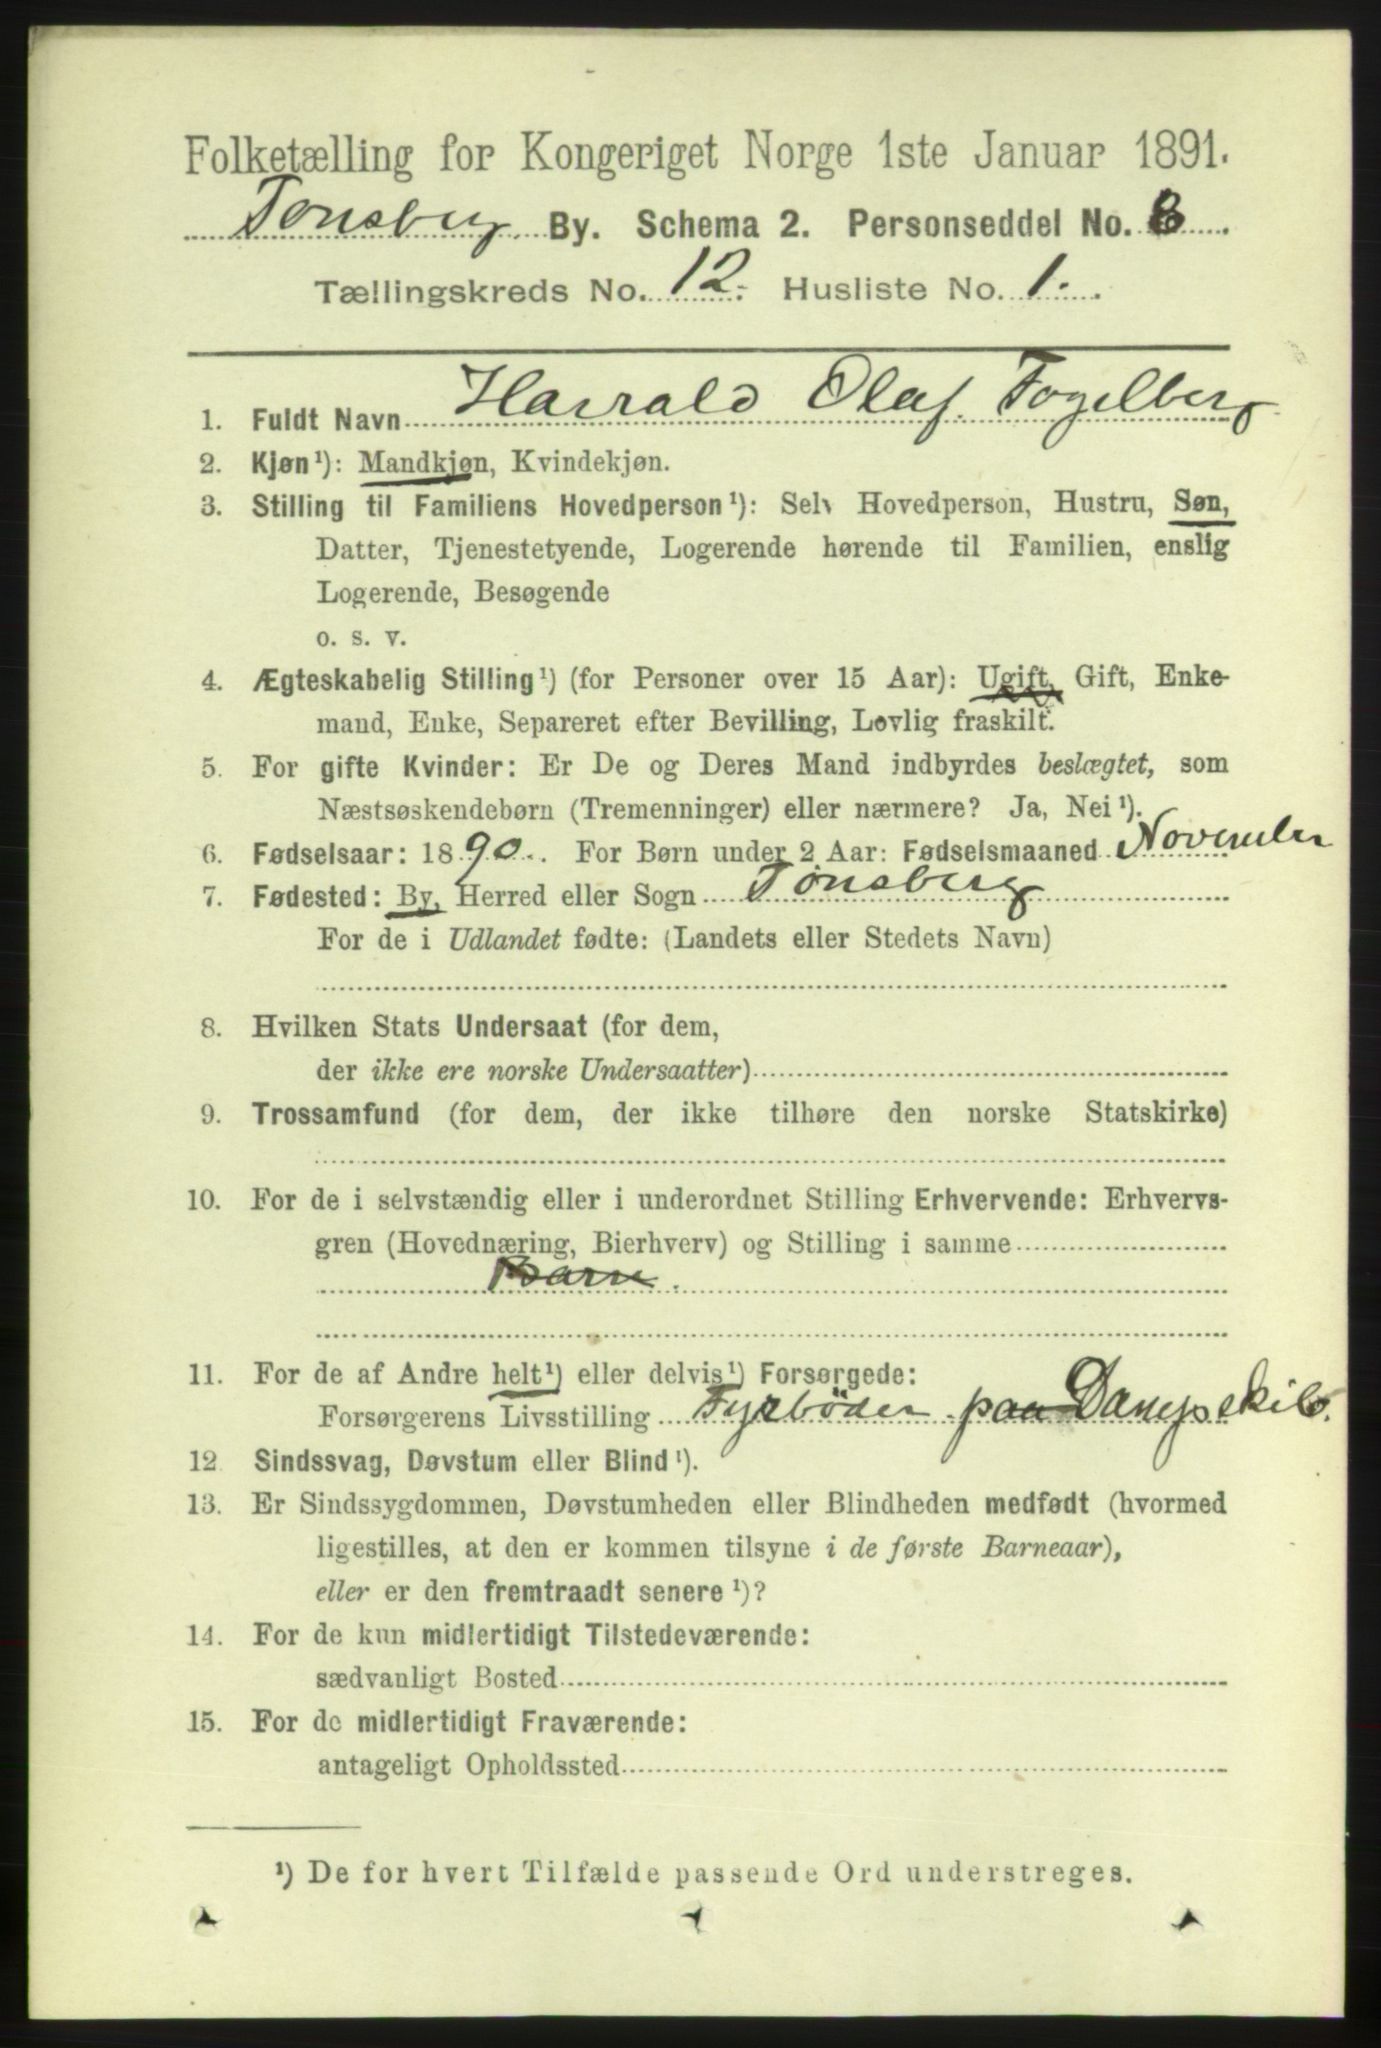 Folketælling for Kongeriget Norge 1ste Januar 1891.
Tønsberg By. Schema 2. Personseddel No. 8
Tællingskreds No. 12. Husliste No. 1.
1. Fuldt Navn Harrald Olaf Fogelberg
2. Kjøn¹): Mandkjøn, Kvindekjøn.
3. Stilling til Familiens Hovedperson¹): Selv Hovedperson, Hustru, Søn,
Datter, Tjenestetyende, Logerende hørende til Familien, enslig
Logerende, Besøgende
o. s. v.
4. Ægteskabelig Stilling¹) (for Personer over 15 Aar): Ugift, Gift, Enke-
mand, Enke, Separeret efter Bevilling, Lovlig fraskilt.
5. For gifte Kvinder: Er De og Deres Mand indbyrdes beslægtet, som
Næstsøskendebørn (Tremenninger) eller nærmere? Ja, Nei¹).
6. Fødselsaar: 1890. For Børn under 2 Aar: Fødselsmaaned November
7. Fødested: By, Herred eller Sogn Tønsberg
For de i Udlandet fødte: (Landets eller Stedets Navn)
8. Hvilken Stats Undersaat (for dem,
der ikke ere norske Undersaatter)
9. Trossamfund (for dem, der ikke tilhøre den norske Statskirke)
10. For de i selvstændig eller i underordnet Stilling Erhvervende: Erhvervs-
gren (Hovednæring, Bierhverv) og Stilling i samme
Barn.
11. For de af Andre helt¹) eller delvis¹) Forsørgede:
Forsørgerens Livsstilling Fyrbøder paa Dampskib.
12. Sindssvag, Døvstum eller Blind¹).
13. Er Sindssygdommen, Døvstumheden eller Blindheden medfødt (hvormed
ligestilles, at den er kommen tilsyne i de første Barneaar),
eller er den fremtraadt senere¹)?
14. For de kun midlertidigt Tilstedeværende:
sædvanligt Bosted
15. For de midlertidigt Fraværende:
antageligt Opholdssted
¹) De for hvert Tilfælde passende Ord understreges.